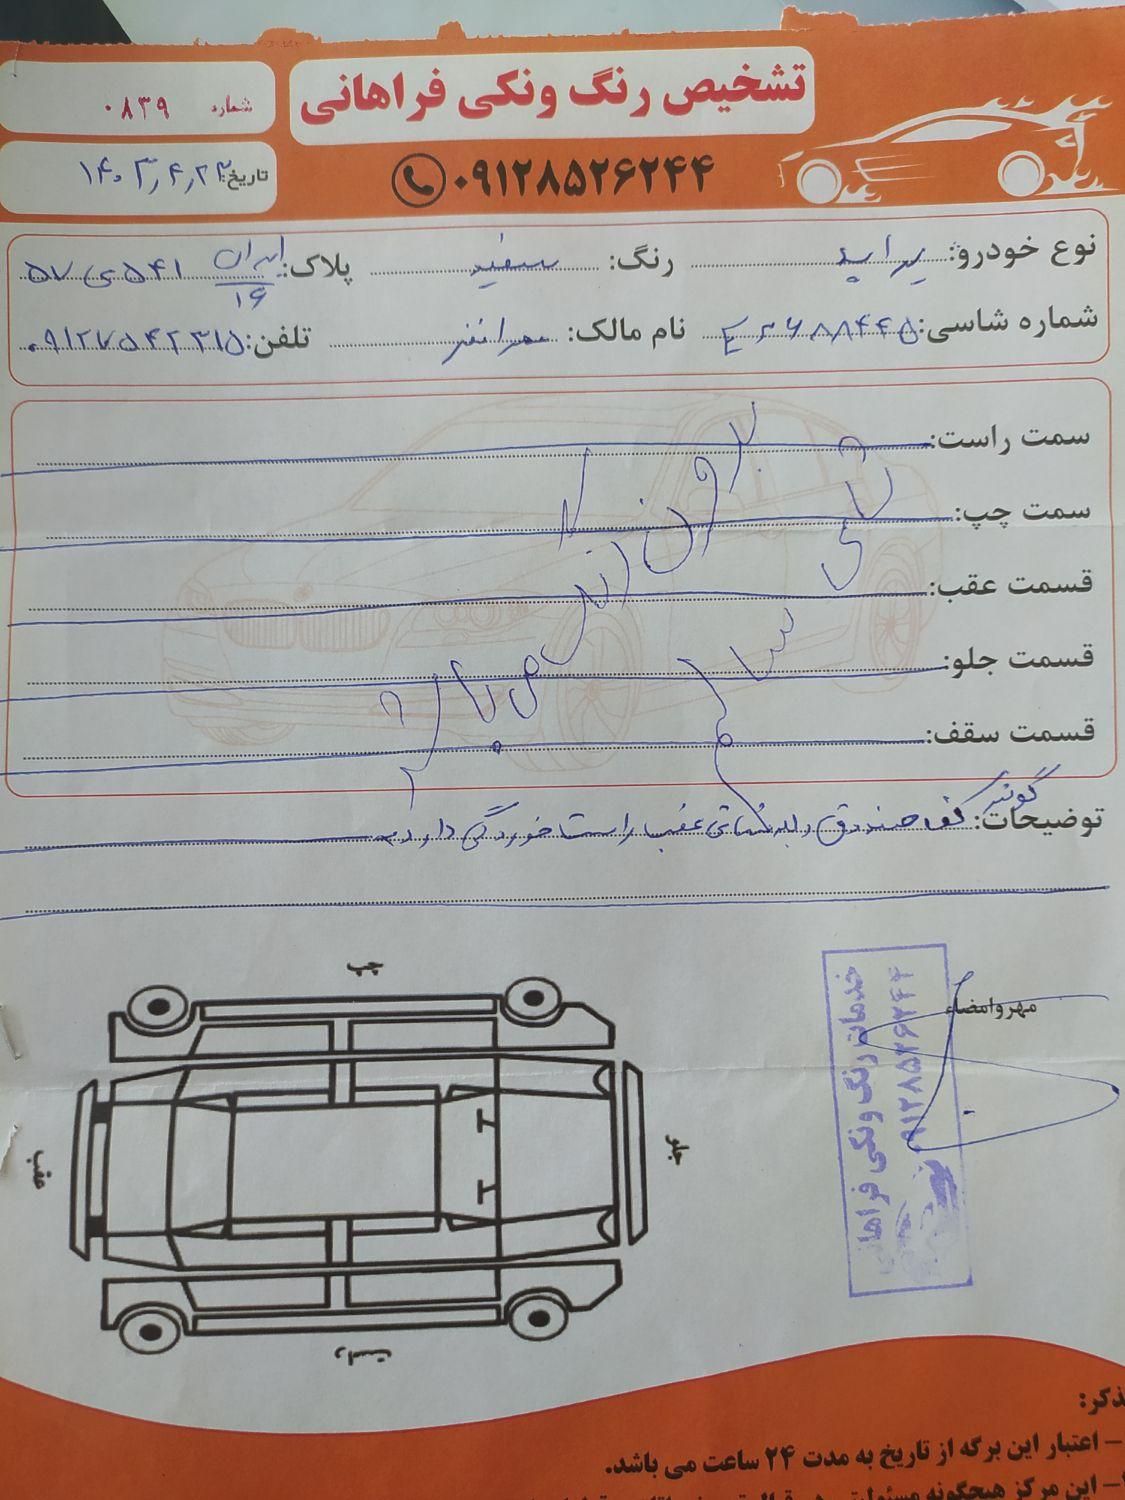 تشخیص رنگ ونکی فراهانی
شماره ۰۸۳۹
۰۹۱۲۸۵۲۶۲۴۴
تاریخ: ۱۴۰۳,۴,۲۳
نوع خودرو: پراید رنگ: سفید پلاک: ایران ۱۶ ۵۴۱ی۵۷
شماره شاسی: نام مالک: تلفن: ۰۹۱۲۷۵۴۲۳۱۵
سمت راست:
سمت چپ:
قسمت عقب:
قسمت جلو:
قسمت سقف:
بدون رنگ می باشد
شاسی سالم
توضیحات: کف صندوق عقب راست خوردگی دارد
چپ
مهر و امضاء
خدمات رنگ ونکی فراهانی
۰۹۱۲۸۵۲۶۲۴۴
جلو
عقب
راست
تذکر:
– اعتبار این برگه از تاریخ به مدت ۲۴ ساعت می باشد.
– این مرکز هیچگونه مسئولیتی در قبال